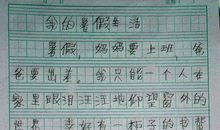 我的暑假生活
暑假，妈妈要上班，爸
爸要出差，我只能一个人在
家里眼泪汪汪地仰望窗外的
世界，幸好有一柜子的书陪